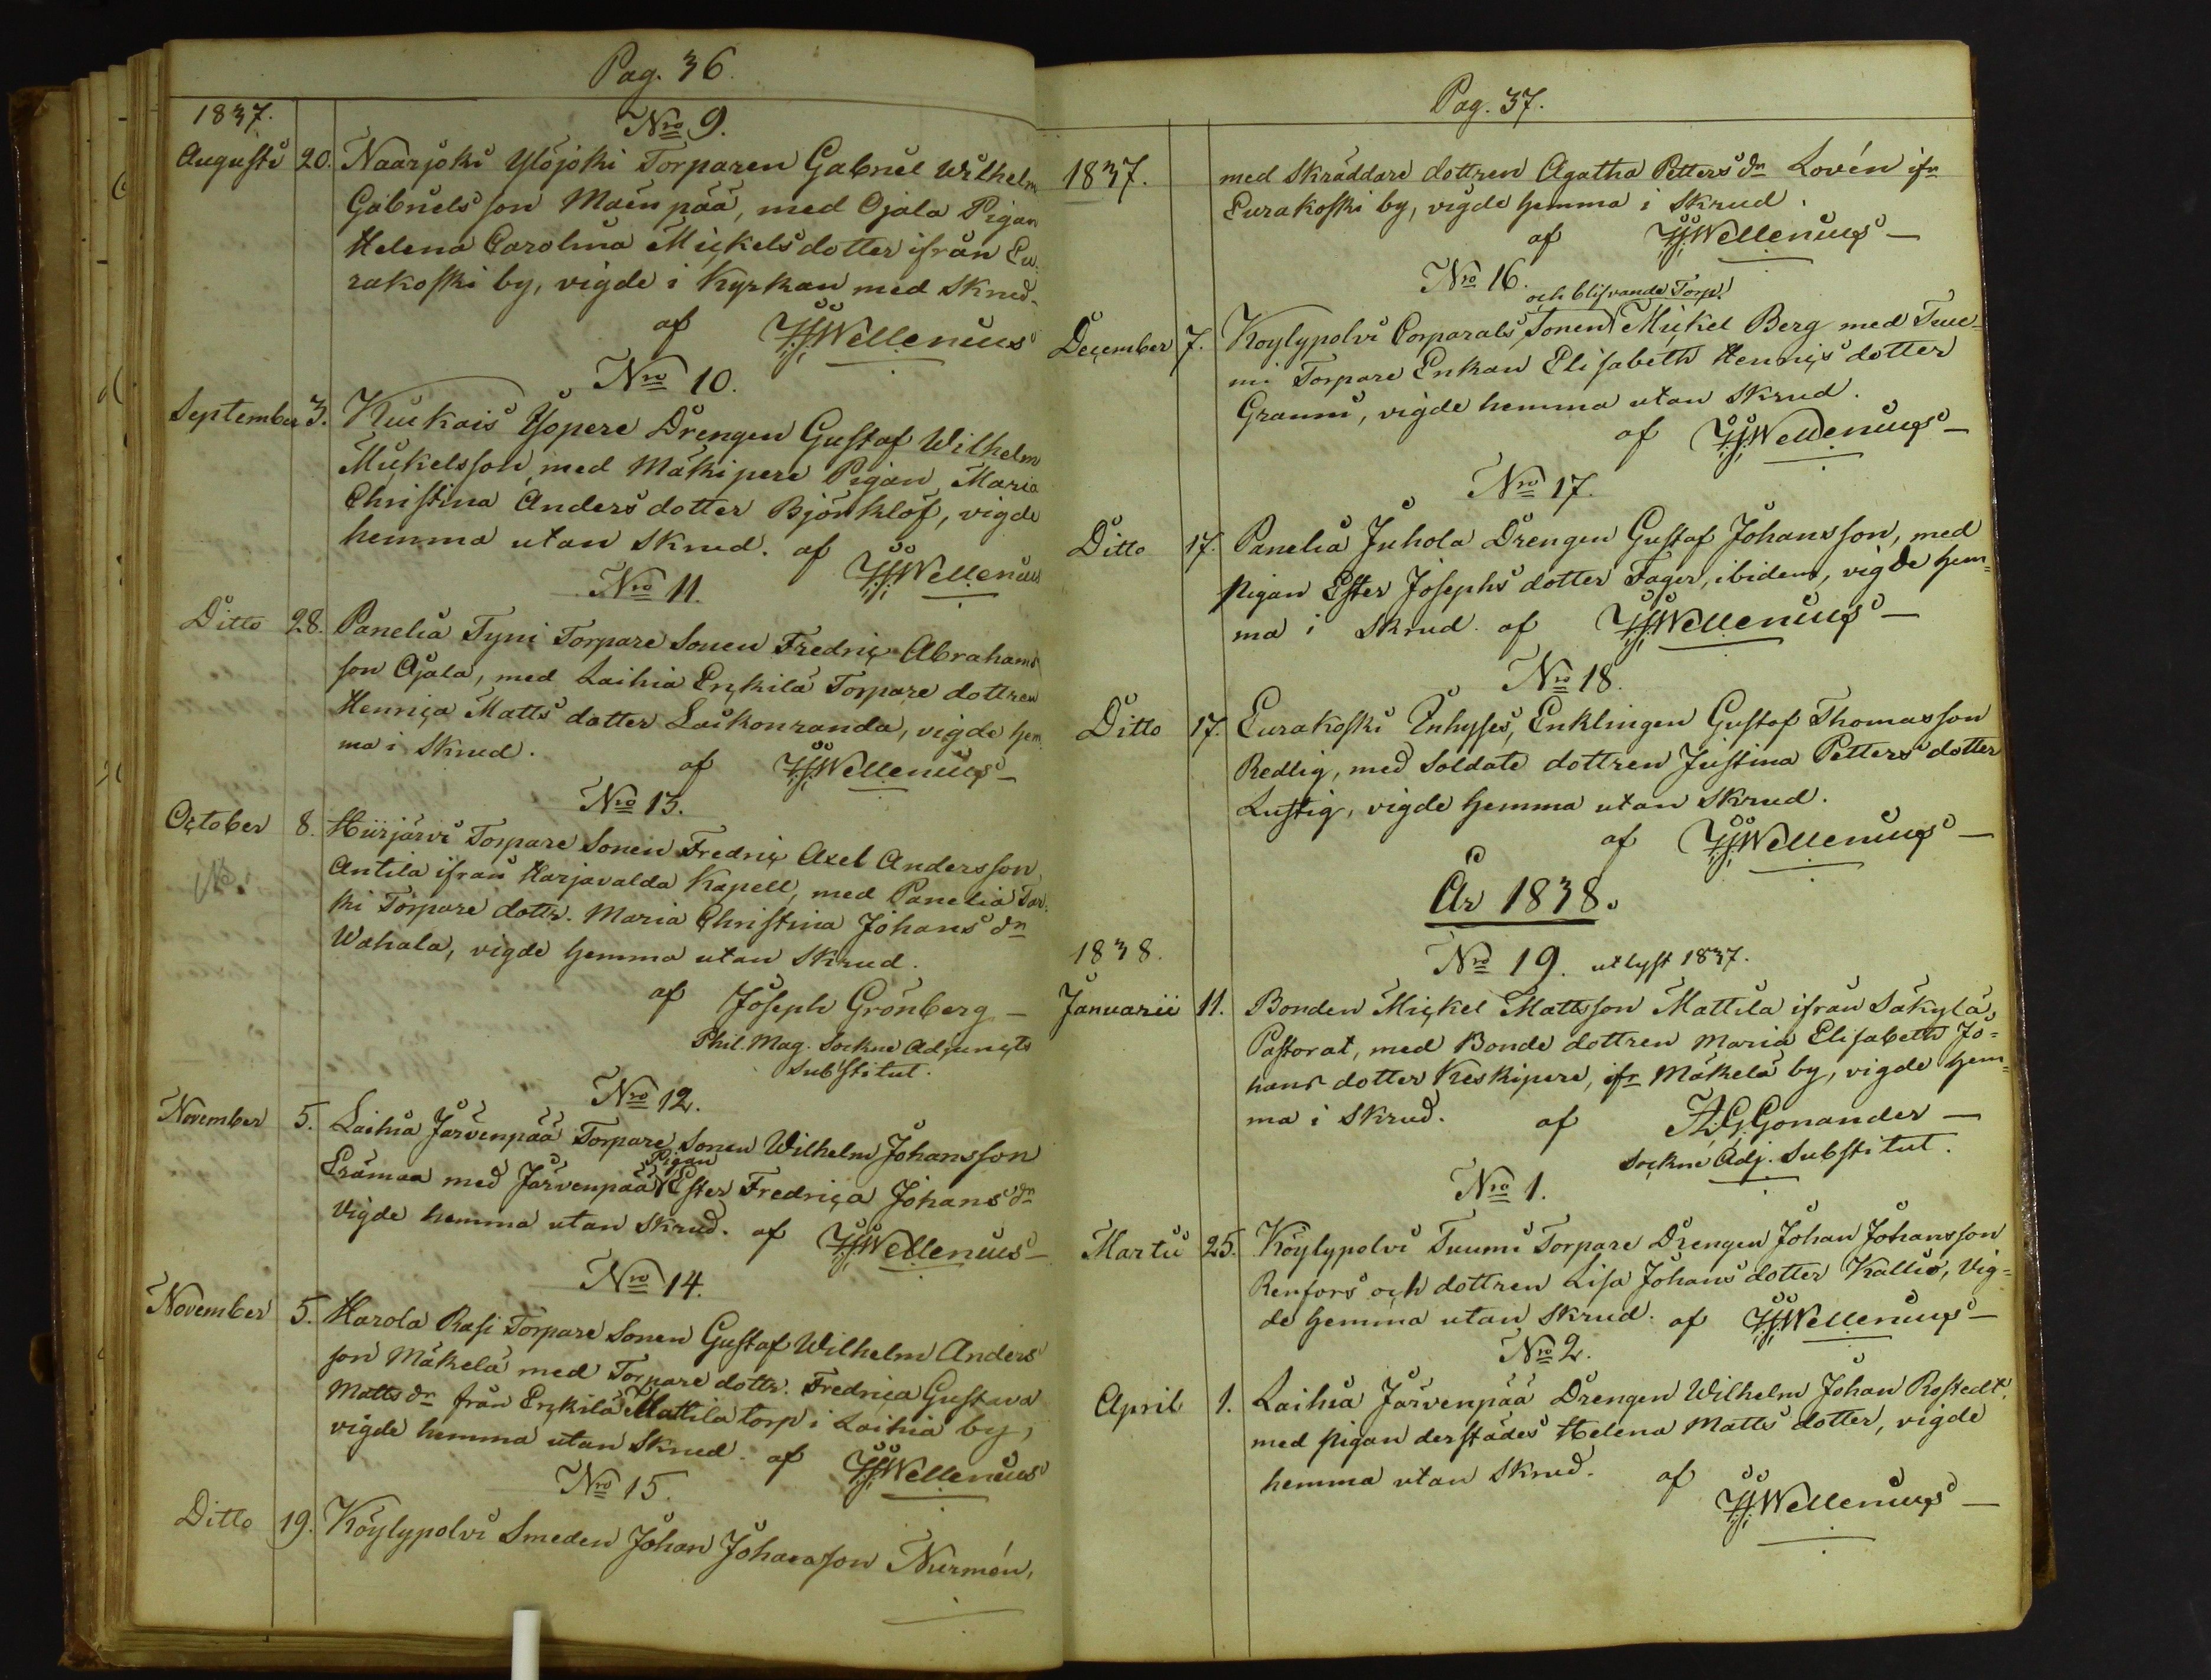 Pag. 36.
1837.
Nro 9.
Augusti 20. Naarjoki Ylöjoki Torparen Gabriel Wilhelm
Gabriels son Mäenpää, med Ojala Pigan
Helena Carolina Mickels dotter ifrån Eu-
rakoski by, vigde i Kyrkan med Skrud.
af HHWellenius
Nro 10.
September 3. Kuckais Yöpere Drengen Gustaf Wilhelm
Mickelsson, med Mäkipere Pigan, Maria
Christina Anders dotter Björklöf, vigde
hemma utan Skrud. af HHWellenius
Nro 11.
Ditto 28. Panelia Tyni Torpare Sonen Fredric Abrahams
son Ojala, med Laihia Erckilä Torpare dottren
Henrica Matts dotter Laikonranda, vigde hem-
ma i Skrud. af HHWellenius
Nro 13.
October 8. Hiirjärvi Torpare Sonen Fredric Axel Andersson
Antila ifrån Harjavalda Kapell, med Panelia Tar-
ki Torpare dottr. Maria Christina Johans dn
Wahala, vigde hemma utan Skrud.
af Joseph Grönberg
Phil. Mag. Sockne Adjuncts
Substitut.
Nro 12.
November 5. Laihia Järvenpää Torpare Sonen Wilhelm Johansson
Erämaa med Järvenpää Pigan Ester Fredrica Johans dn
Vigde hemma utan Skrud. af HHWellenius
Nro 14.
November 5. Harola Rasi Torpare Sonen Gustaf Wilhelm Anders
son Mäkelä med Torpare dottr. Fredrica Gustava
Matts dn från Erckilä Mattila torp i Laihia by,
vigde hemma utan Skrud. af HHWellenius
Nro 15.
Ditto 19. Köylypolvi Smeden Johan Johansson Nurmén,
Pag. 37.
1837. med Skräddare dottren Agatha Petters dn Lovén ifn
Eurakoski by, vigde hemma i Skrud.
af HHWellenius
Nro 16.
och blifvande Torp.
December 7. Köylypolvi Corporals Sonen Mickel Berg med Tuu-
mi Torpare Enkan Elisabeth Henrics dotter
Granni, vigde hemma utan Skrud.
af HHWellenius
Nro 17.
Ditto 17. Panelia Juhola Drengen Gustaf Johansson, med
Pigan Ester Josephs dotter Fager, ibidem, vigde hem-
ma i Skrud. af HHWellenius
Nro 18.
Ditto 17. Eurakoski Inhyses, Enklingen Gustaf Thomasson
Redlig, med Soldate dottren Justina Petters dotter
Lustig, vigde hemma utan Skrud.
af HHWellenius
År 1838.
1838. Nro 19. utlyst 1837.
Januarii 11. Bonden Mickel Mattsson Mattila ifrån Säkylä
Pastorat, med Bonde dottren Maria Elisabeth Jo-
hans dotter Keskipere, ifr Mäkelä by, vigde hem-
ma i Skrud. af A.G.Gonander
Sockne Adj. Substitut.
Nro 1.
Martii 25. Köylypolvi Tuumi Torpare Drengen Johan Johansson
Renfors och dottren Lisa Johans dotter Kallio, Vig-
de hemma utan Skrud. af HHWellenius
Nro 2.
April 1. Laihia Järvenpää Drengen Wilhelm Johan Rostedt
med Pigan derstädes Helena Matts dotter, vigde
hemma utan Skrud. af
HHWellenius